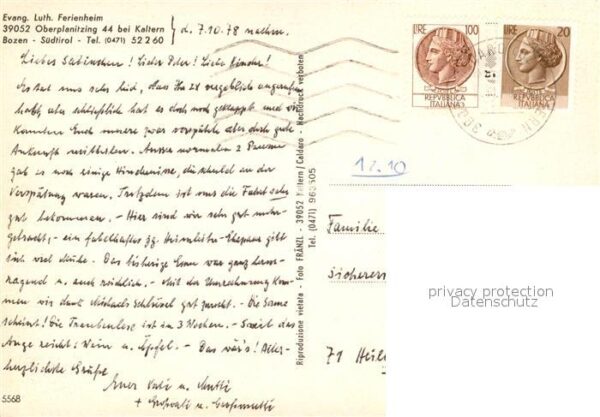 Evang. Luth. Ferienheim
39052 Oberplanitzing 44 bei Kaltern
Bozen - Südtirol - Tel. (0471) 5 22 60
d. 7.10.78 nachm.
Liebes Sabinchen! Lieber Peter! Liebe Kinder!
Es tat uns sehr leid, dass Ihr 2x vergeblich angerufen
habt, aber schließlich hat es doch noch geklappt und wir
konnten Euch unsere zwar verspätete aber doch gute
Ankunft mitteilen. Ausser normalen 2 Pausen
gab es noch einige Hindernisse, die schuld an der
Verspätung waren. Trotzdem ist uns die Fahrt sehr
gut bekommen. - Hier sind wir sehr gut unter-
gebracht, - ein fabelhaftes jg. Heimleiter-Ehepaar gibt
sich viel Mühe. Das bisherige Essen war ganz hervor-
ragend u. auch reichlich. - Mit der Umrechnung kom-
men wir dank Michaels Schlüssel gut zurecht. - Die Sonne
scheint! Die Traubenlese ist in 3 Wochen. - Soweit das
Auge reicht: Wein u. Äpfel. - Das wär's! Aller-
herzlichste Grüße
Euer Vati u. Mutti
+ Großvati u. Großmutti
5568
Riproduzione vietata - Foto FRÄNZL - 39052 Kaltern / Caldaro - Nachdruck verboten
Tel. (0471) 963505
LIRE 100
REPVBBLICA
ITALIANA
LIRE 20
REPVBBLICA
ITALIANA
12.10
Familie
71 Heil
privacy protection
Datenschutz